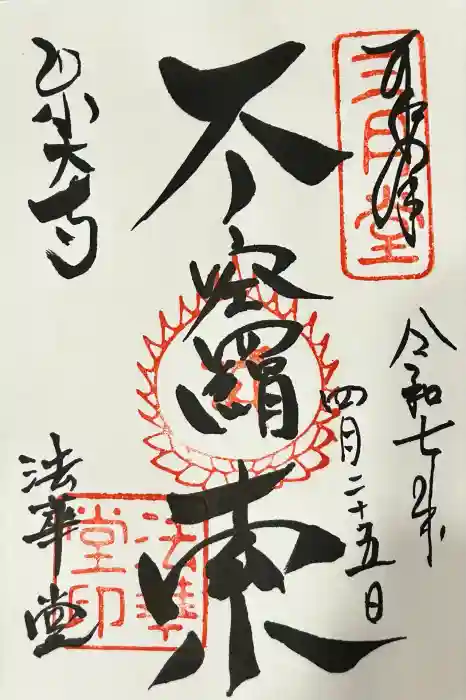 三月堂
令和七年
四月二十五日
不空羂索
東大寺
法華堂
法華堂印